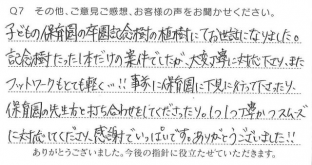 Q7 その他、ご意見ご感想、お客様の声をお聞かせください。
子どもの保育園の卒園記念樹の植樹にてお世話になりました。
記念樹たった1本だけの案件でしたが、大変丁寧に対応下さり、また
フットワークもとても軽く…!! 事前に保育園に下見に行って下さったり、
保育園の先生方と打ち合わせをしてくださったり。1つ1つ丁寧かつスムーズ
に対応してくださり、感謝でいっぱいです。ありがとうございました!!
ありがとうございました。今後の指針に役立たせていただきます。